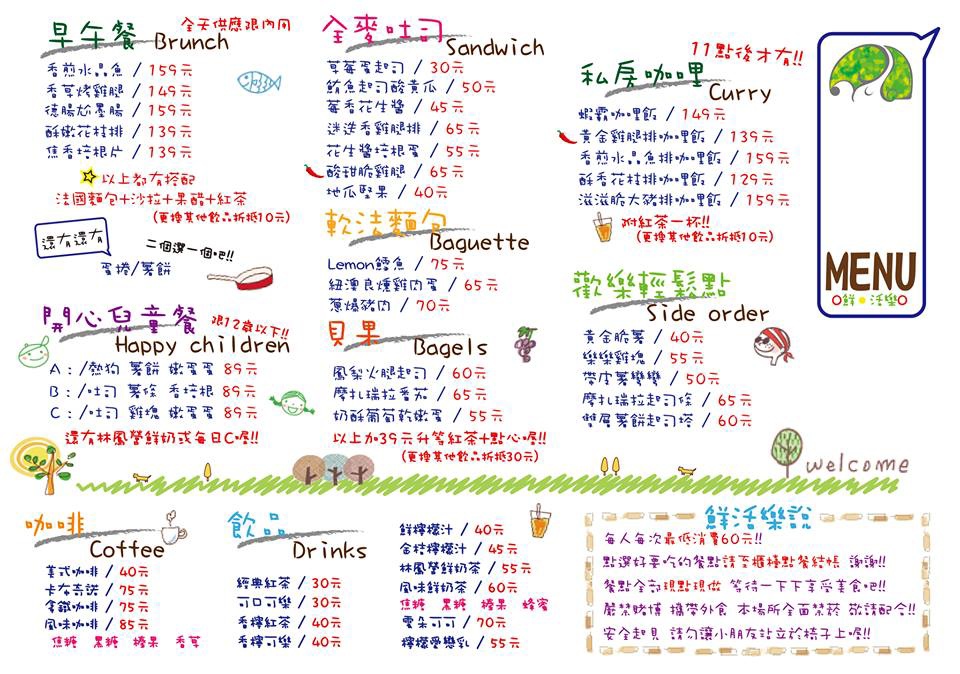 早午餐 Brunch
全天供應限內用
香煎水晶魚 / 159元
香草烤雞腿 / 149元
德腸尬墨腸 / 159元
酥嫩花枝排 / 139元
焦香培根片 / 139元
以上都有搭配
法國麵包+沙拉+果醋+紅茶
(更換其他飲品折抵10元)
還有還有
二個選一個吧!!
蛋捲/薯餅
開心兒童餐
限12歲以下!!
Happy children
A：/熱狗 薯餅 嫩蛋蛋 89元
B：/吐司 薯條 香培根 89元
C：/吐司 雞塊 嫩蛋蛋 89元
還有林鳳營鮮奶或每日C喔!!
全麥吐司
Sandwich
草莓蛋起司 / 30元
鮪魚起司酸黃瓜 / 50元
莓香花生醬 / 45元
迷迭香雞腿排 / 65元
花生醬培根蛋 / 55元
酸甜脆雞腿 / 65元
地瓜堅果 / 40元
軟法麵包
Baguette
Lemon鱈魚 / 75元
紐澳良燻雞肉蛋 / 65元
蔥爆豬肉 / 70元
貝果
Bagels
鳳梨火腿起司 / 60元
摩扎瑞拉番茄 / 65元
奶酥葡萄乾嫩蛋 / 55元
以上加39元升等紅茶+點心喔!!
(更換其他飲品折抵30元)
11點後才有!!
私房咖哩
Curry
蝦霸咖哩飯 / 149元
黃金雞腿排咖哩飯 / 139元
香煎水晶魚排咖哩飯 / 159元
酥香花枝排咖哩飯 / 129元
滋滋脆大豬排咖哩飯 / 159元
附紅茶一杯!!
(更換其他飲品折抵10元)
歡樂輕鬆點
Side order
黃金脆薯 / 40元
樂樂雞塊 / 55元
帶皮薯彎彎 / 50元
摩扎瑞拉起司條 / 65元
雙層薯餅起司塔 / 60元
MENU
鮮 活樂
welcome
咖啡
Coffee
美式咖啡 / 40元
卡布奇諾 / 75元
拿鐵咖啡 / 75元
風味咖啡 / 85元
焦糖 黑糖 榛果 香草
飲品
Drinks
經典紅茶 / 30元
可口可樂 / 30元
香檸紅茶 / 40元
香檸可樂 / 40元
鮮檸檬汁 / 40元
金桔檸檬汁 / 45元
林鳳營鮮奶茶 / 55元
風味鮮奶茶 / 60元
焦糖 黑糖 榛果 蜂蜜
雲朵可可 / 70元
檸檬愛戀乳 / 55元
鮮活樂說
每人每次最低消費60元!!
點選好要吃的餐點請至櫃檯點餐結帳 謝謝!!
餐點全部現點現做 等待一下下享受美食吧!!
嚴禁賭博 攜帶外食 本場所全面禁菸 敬請配合!!
安全起見 請勿讓小朋友站立於椅子上喔!!